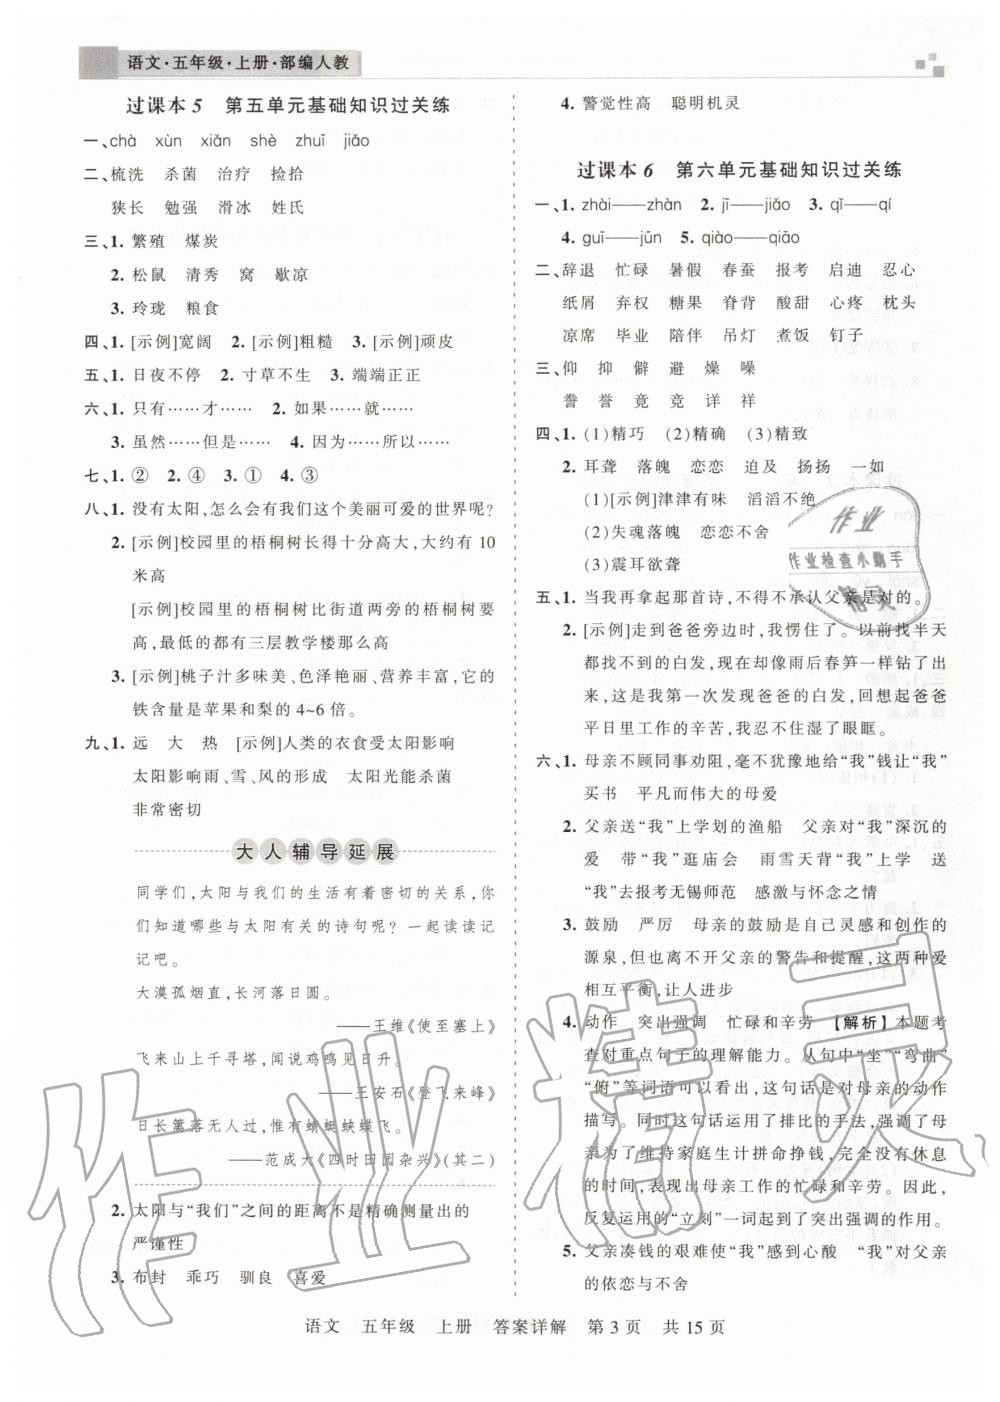 语文·五年级·上册·部编人教
过课本5 第五单元基础知识过关练
一、chà xùn xiǎn shè zhuī jiǎo
二、梳洗 杀菌 治疗 捡拾
狭长 勉强 滑冰 姓氏
三、1. 繁殖 煤炭
2. 松鼠 清秀 窝 歇凉
3. 玲珑 粮食
四、1. [示例]宽阔 2. [示例]粗糙 3. [示例]顽皮
五、1. 日夜不停 2. 寸草不生 3. 端端正正
六、1. 只有……才…… 2. 如果……就……
3. 虽然……但是…… 4. 因为……所以……
七、1. ② 2. ④ 3. ① 4. ③
八、1. 没有太阳,怎么会有我们这个美丽可爱的世界呢?
2. [示例]校园里的梧桐树长得十分高大,大约有 10
米高
[示例]校园里的梧桐树比街道两旁的梧桐树要
高,最低的都有三层教学楼那么高
3. [示例]桃子汁多味美、色泽艳丽、营养丰富,它的
铁含量是苹果和梨的 4~6 倍。
九、1. 远 大 热 [示例]人类的衣食受太阳影响
太阳影响雨、雪、风的形成 太阳光能杀菌
非常密切
大人辅导延展
同学们,太阳与我们的生活有着密切的关系,你
们知道哪些与太阳有关的诗句呢?一起读读记
记吧。
大漠孤烟直,长河落日圆。
——王维《使至塞上》
飞来山上千寻塔,闻说鸡鸣见日升。
——王安石《登飞来峰》
日长篱落无人过,惟有蜻蜓蛱蝶飞。
——范成大《四时田园杂兴》(其二)
2. 太阳与“我们”之间的距离不是精确测量出的
严谨性
3. 布封 乖巧 驯良 喜爱
4. 警觉性高 聪明机灵
过课本6 第六单元基础知识过关练
一、1. zhài——zhàn 2. jī——jiǎo 3. qǐ——qí
4. guī——jūn 5. qiào——qiāo
二、辞退 忙碌 暑假 春蚕 报考 启迪 忍心
纸屑 弃权 糖果 脊背 酸甜 心疼 枕头
凉席 毕业 陪伴 吊灯 煮饭 钉子
三、仰 抑 僻 避 燥 噪
誊 誉 竟 竞 详 祥
四、1. (1)精巧 (2)精确 (3)精致
2. 耳聋 落魄 恋恋 迫及 扬扬 一如
(1)[示例]津津有味 滔滔不绝
(2)失魂落魄 恋恋不舍
(3)震耳欲聋
五、1. 当我再拿起那首诗,不得不承认父亲是对的。
2. [示例]走到爸爸旁边时,我愣住了。以前找半天
都找不到的白发,现在却像雨后春笋一样钻了出
来,这是我第一次发现爸爸的白发,回想起爸爸
平日里工作的辛苦,我忍不住湿了眼眶。
六、1. 母亲不顾同事劝阻,毫不犹豫地给“我”钱让“我”
买书 平凡而伟大的母爱
2. 父亲送“我”上学划的渔船 父亲对“我”深沉的
爱 带“我”逛庙会 雨雪天背“我”上学 送
“我”去报考无锡师范 感激与怀念之情
3. 鼓励 严厉 母亲的鼓励是自己灵感和创作的
源泉,但也离不开父亲的警告和提醒,这两种爱
相互平衡,让人进步
4. 动作 突出强调 忙碌和辛劳 【解析】本题考
查对重点句子的理解能力。从句中“坐”“弯曲”
“俯”等词语可以看出,这句话是对母亲的动作
描写。同时这句话运用了排比的手法,强调了母
亲为了维持家庭生计拼命挣钱,完全没有休息
的时间,表现出母亲工作的忙碌和辛劳。因此,
反复运用的“立刻”一词起到了突出强调的作用。
5. 父亲凑钱的艰难使“我”感到心酸 “我”对父亲
的依恋与不舍
作业
作业检查小助手
精灵
作业精灵
语文 五年级 上册 答案详解 第 3 页 共 15 页